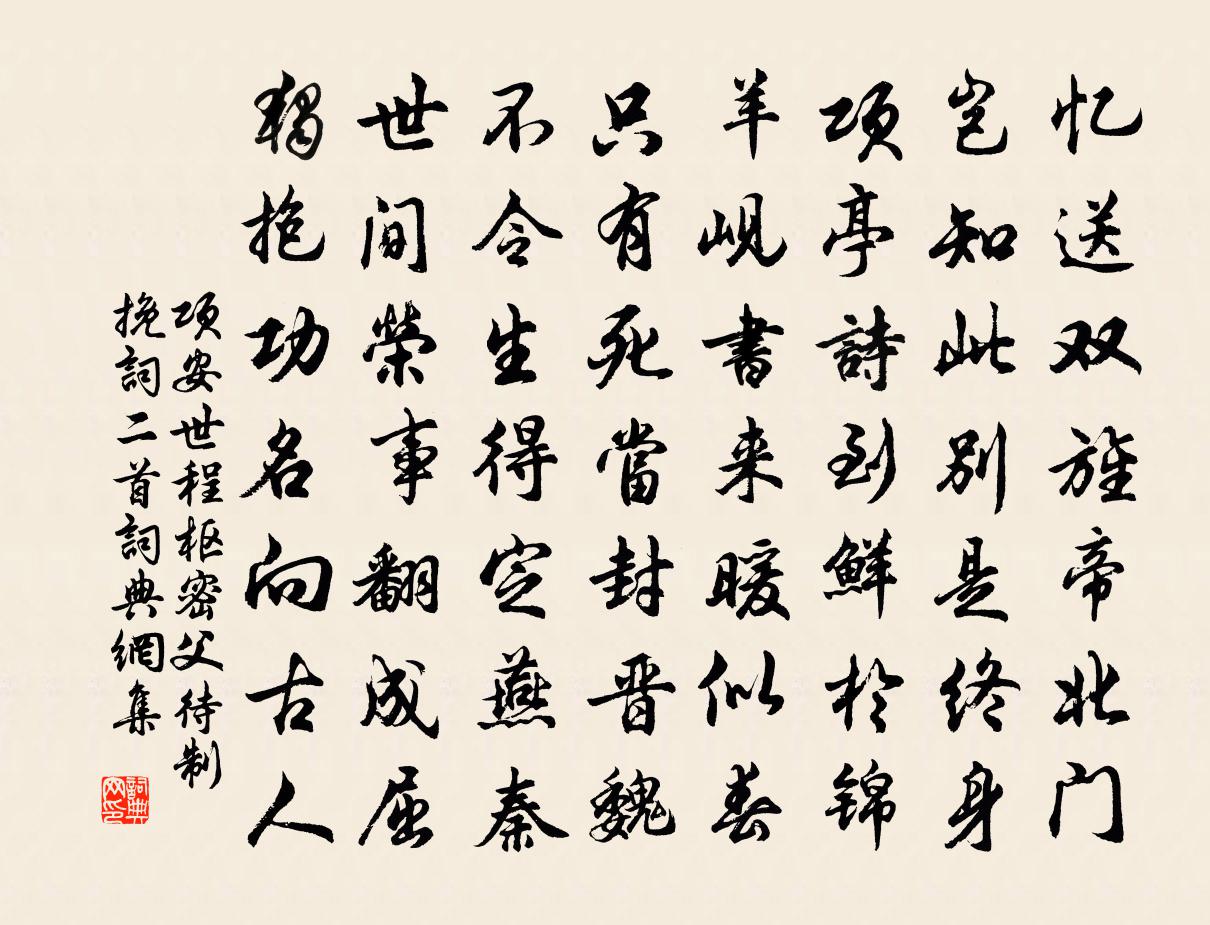 忆送双旌帝北门
岂知此别是终身
项亭詩到鮮於锦
羊岘書来暖似春
只有死當封晋魏
不令生得定燕秦
世间榮事翻成屈
獨抱功名向古人
项安世程枢密父待制
挽詞二首詞典網集
詞典
网印